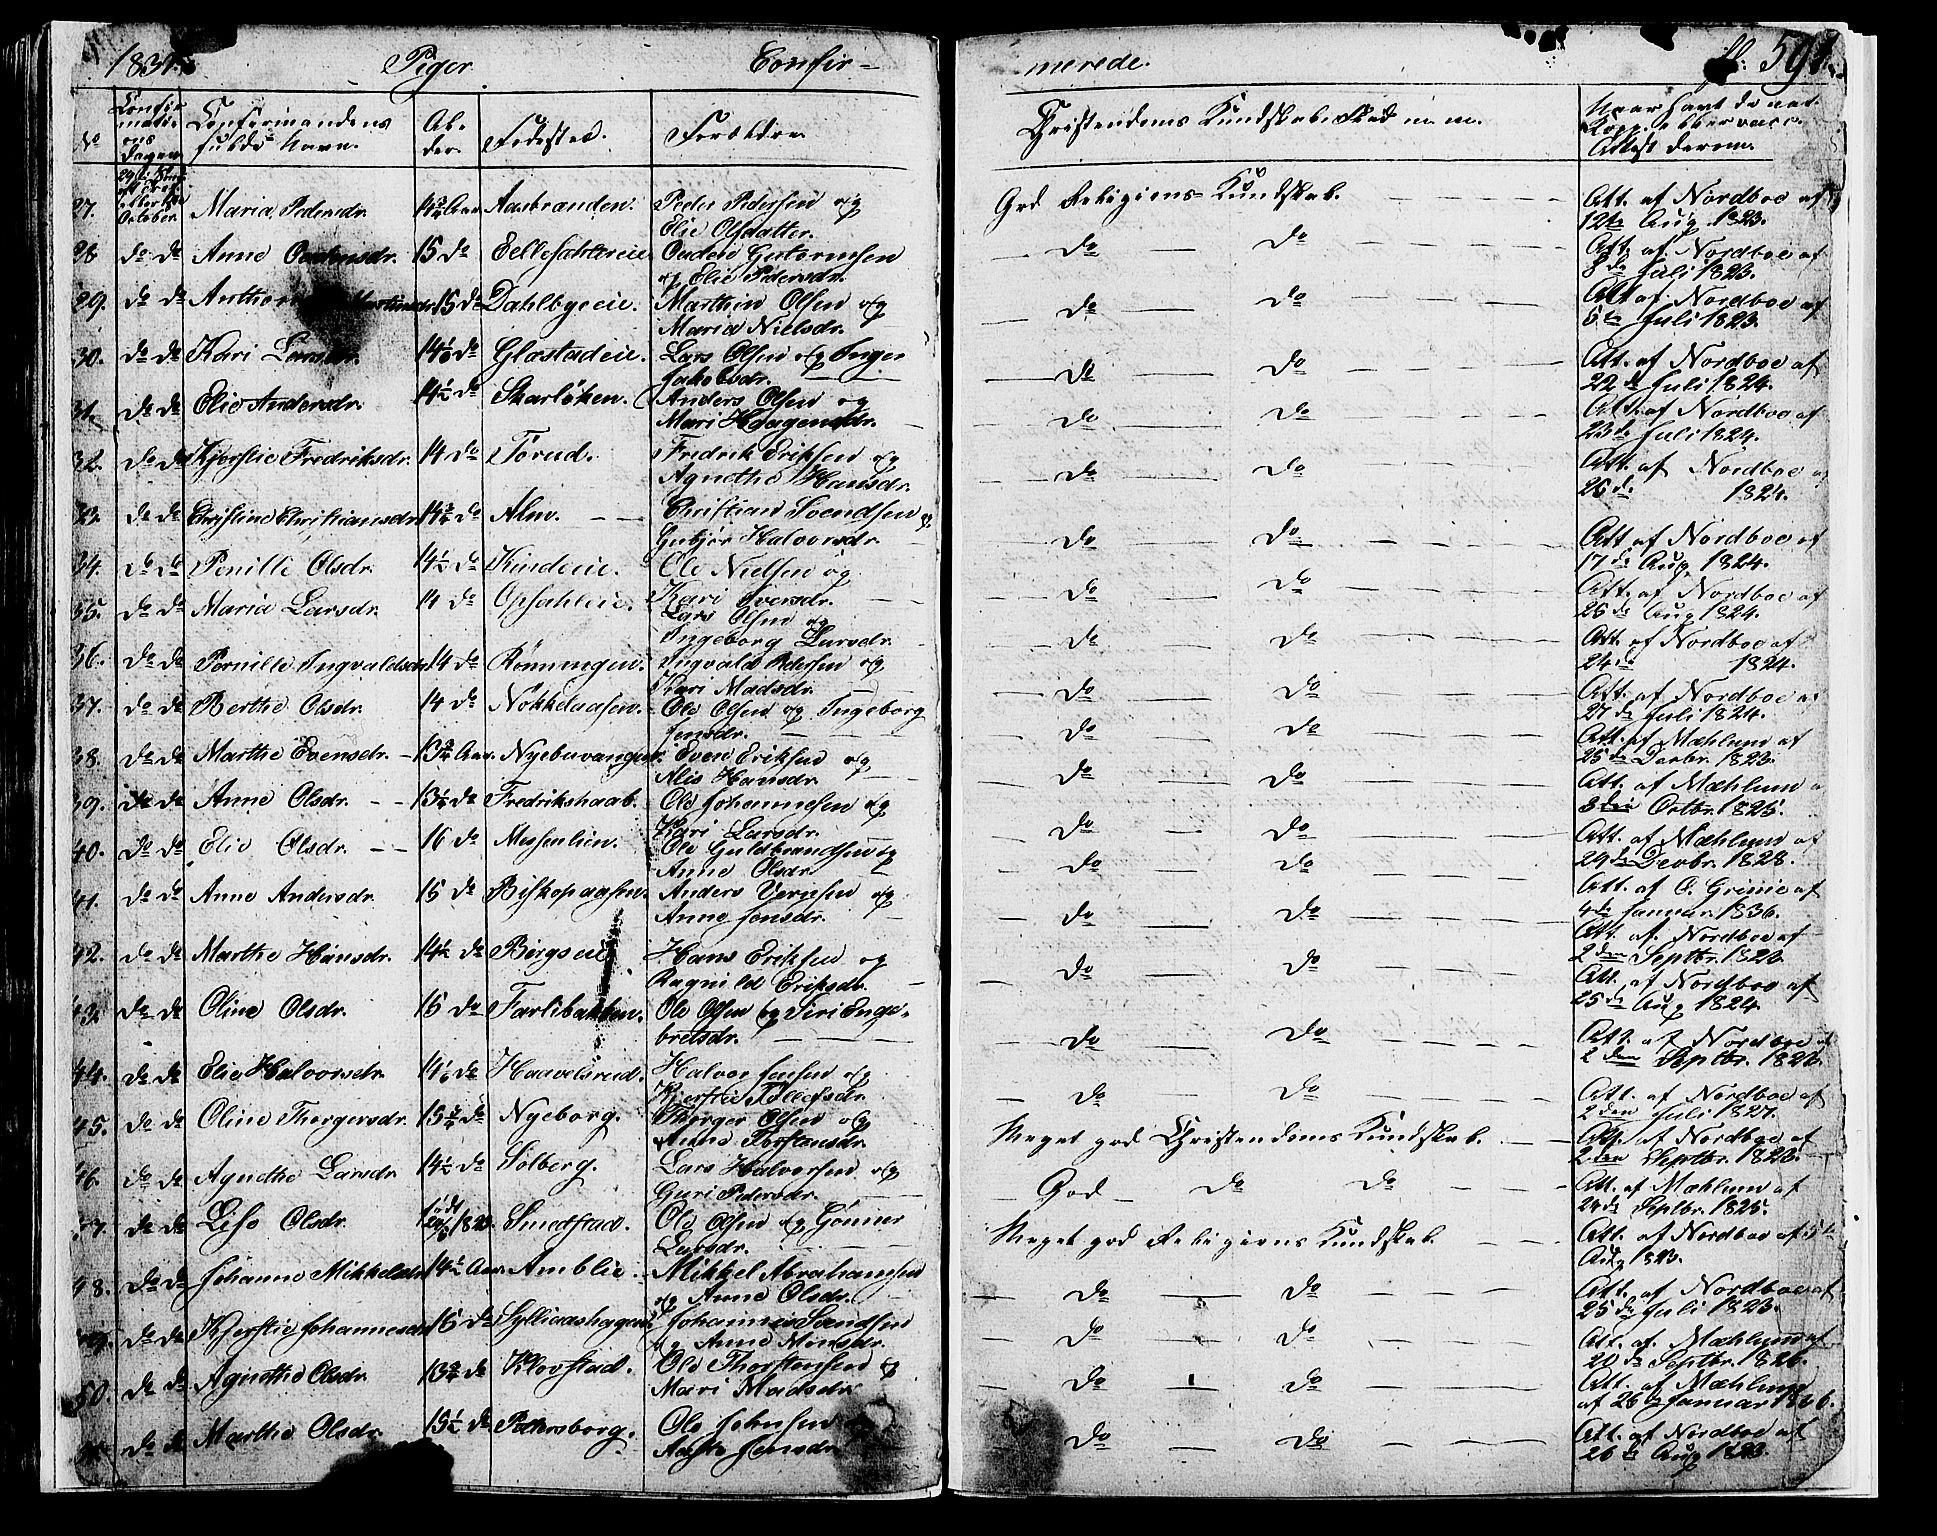 1837. Piger Confir-
merede. 597.
No Confirmationsdagen Confirmandens fulde Navn. Alder. Fødested. Forældre. Christendoms Kundskab, Flid m. m. Naar havt de nat. Kopp. eller vacc. Attest derom.
27. October. Maria Pedersdr. Aar Aasbranden. Peder Pedersen og God Religions-Kundskab. Att. af Nordboe af
Elie Olsdatter. 12te Aug. 1823.
28 do do Anne 15 do Gudem Guttormsen do do Att. af Nordboe af
og Elie Pedersdr. 8de Juli 1823.
29. do do 15 do Dahlbyeeie. Marthin Olsen og do do Att af Nordboe af
Maria Nielsdr. 5te Juli 1823.
30. do do Kari Larsdr. do Glæstadeie. Lars Olsen og Inger do do Att. af Nordboe af
Jakobsdr. 22de Juli 1824.
31. do do Elie Andersdr. 14½ do Skarløken. Anders Olsen og do do Att. af Nordboe af
Mari Haagensdr. 23de Juli 1824.
32. do do Kjerstie Fredriksdr. 14 do Torud. Fredrik Eriksen og do do Att. af Nordboe
Agnethe Hansdr. 26de 1824.
33. do do Christine Christiansdr. do Alm. Christian Svendsen og do do Att. af Nordboe af
Gubjør Halvorsdr. 17de Aug. 1824.
34. do do Penille Olsdr. 14½ do Kindeie. Ole Nielsen og do do Att. af Nordboe af
Kari Iversdr. 25de Aug 1824.
35. do do Maria Larsdr. 14 do Opsahleie. Lars Olsen og do do Att. af Nordboe af
Ingeborg Larsdr. 24de 1824.
36. do do Pernille Ingvaldsdr. 14 do Rønningen. Ingvald Pedersen og do do Att. af Nordboe af
Kari Madsdr. 27de Juli 1824.
37. do do Berthe Olsdr. 14 do Nøkkelaasen. Ole Olsen og Ingeborg do do Att. af Mæhlum af
Jensdr. 25de Decbr. 1823.
38. do do Marthe Evensdr. Aar Nyebuvangen. Even Eriksen og do do Att. af Mæhlum
Alis Hansdr. 8de Octbr. 1825.
39. do do Anne Olsdr. do Fredrikshaab. Ole Johannesen og do do Att. af Mæhlum af
Kari Larsdr. 29de Decbr. 1828.
40. do do Elie Olsdr. 16 do Messenlien. Ole Guldbrandsen og do do Att. af O. Grinie af
Anne Olsdr. 4de Januar. 1836.
41. do do Anne Andersdr. 15 do Bispkopaasen. Anders og do do Att. af Nordboe af
Anne Jensdr. 2den Septbr. 1823
42. do do Marthe Hansdr. do Bergseie Hans Eriksen og do do Att. af Nordboe af
Ragnild Eriksdr. 25de Aug 1824.
43. do do Oline Olsdr. 15 do Farlibakken. Ole Olsen og Siri Enge- do do Att. af Nordboe
bretsdr. 2den Septbr.
44. do do Elie Halvorsdr. do Haavelsrud. Halvor Jensen og do do Att. af Nordboe af
Kjerstie Tollefsdr. 2den Juli 1827.
45. do do Oline Thorgersdr. do Nyeborg. Thorger Olsen og Meget god Christendoms Kundskab. Att. af Nordboe af
Anne Torstensdr. 2den Septbr. 1823.
46. do do Agnethe Larsdr. 14½ do Solberg. Lars Halvorsen og God do do Att. af Mæhlum af
Guri Pedersdr. 24de Septbr. 1825.
47. do do Lise Olsdr. født Smedstad. Ole Olsen og Gønner Meget god Religions Kundskab. Att. af Nordboe af 5te
Larsdr. Aug 1823.
48. do do Johanne Mikkelsdr. 14½ Aar Amblie. Mikkel Abrahamsen do do Att. af Nordboe af
og Anne Olsdr. 25de Juli 1823.
49. do do Kjerstie Johannesdr. 15 do Sylliaashagen. Johannes Svendsen do do Att. af Mæhlum af
og Anne Monsdr. 20de Septbr.
50. do do Agnethe Olsdr. do Klovstad. Ole Thorstensen og do do Att. af Mæhlum
Mari Madsdr. af 26de Januar
do do Marthe Olsdr. 15½ do Petersborg. Ole Johnsen do do Att. af Nordboe af
Jensdr. 26de Aug 1823.